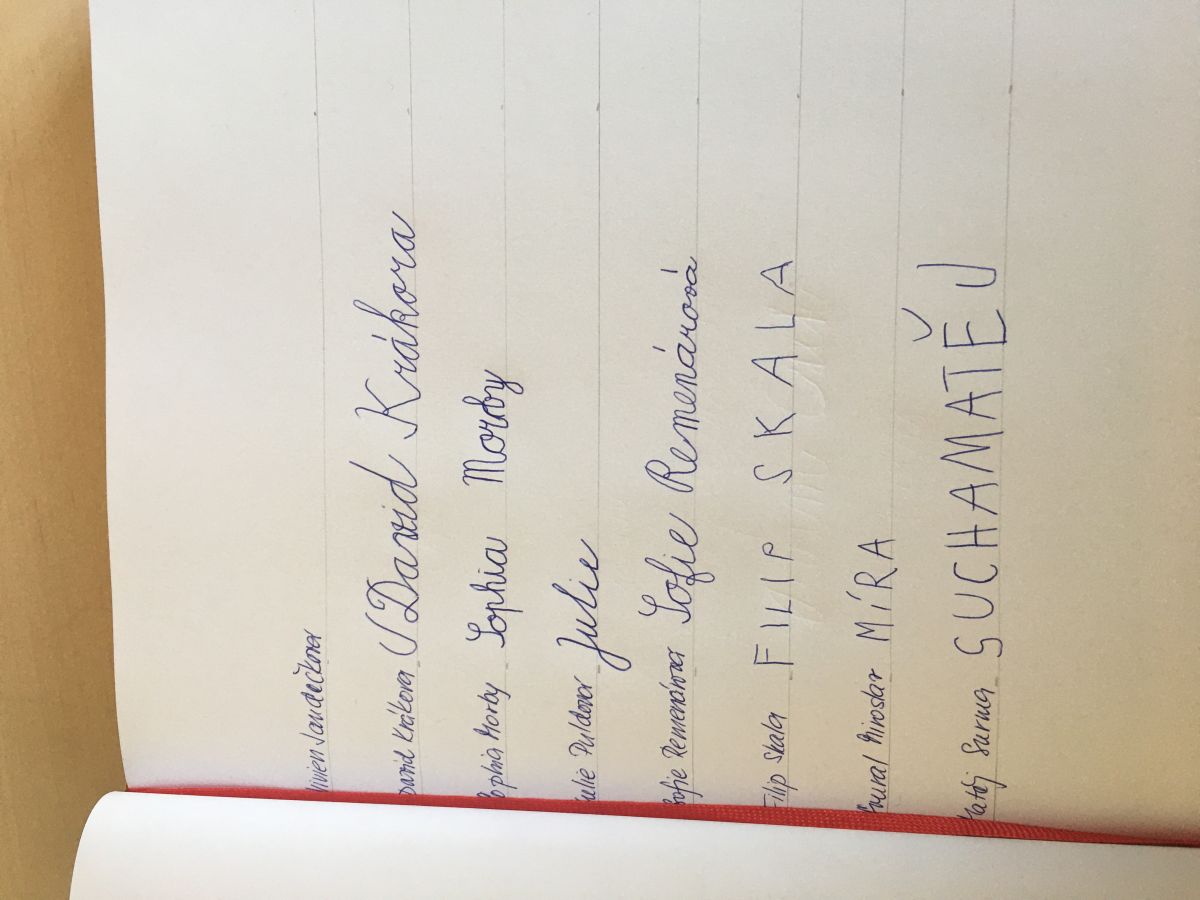 Vivien Jandečková
David Krákora David Krákora
Sophia Morby Sophia Morby
Julie Puldová Julie
Sofie Remenárová Sofie Remenárová
Filip Skala FILIP SKALA
Miroslav MÍRA
Matěj Surma SUCHAMATĚJ